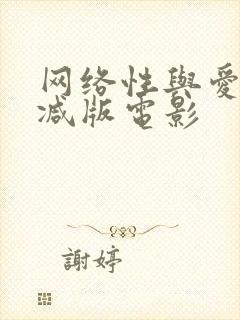 网络性與愛
减版電影
謝婷